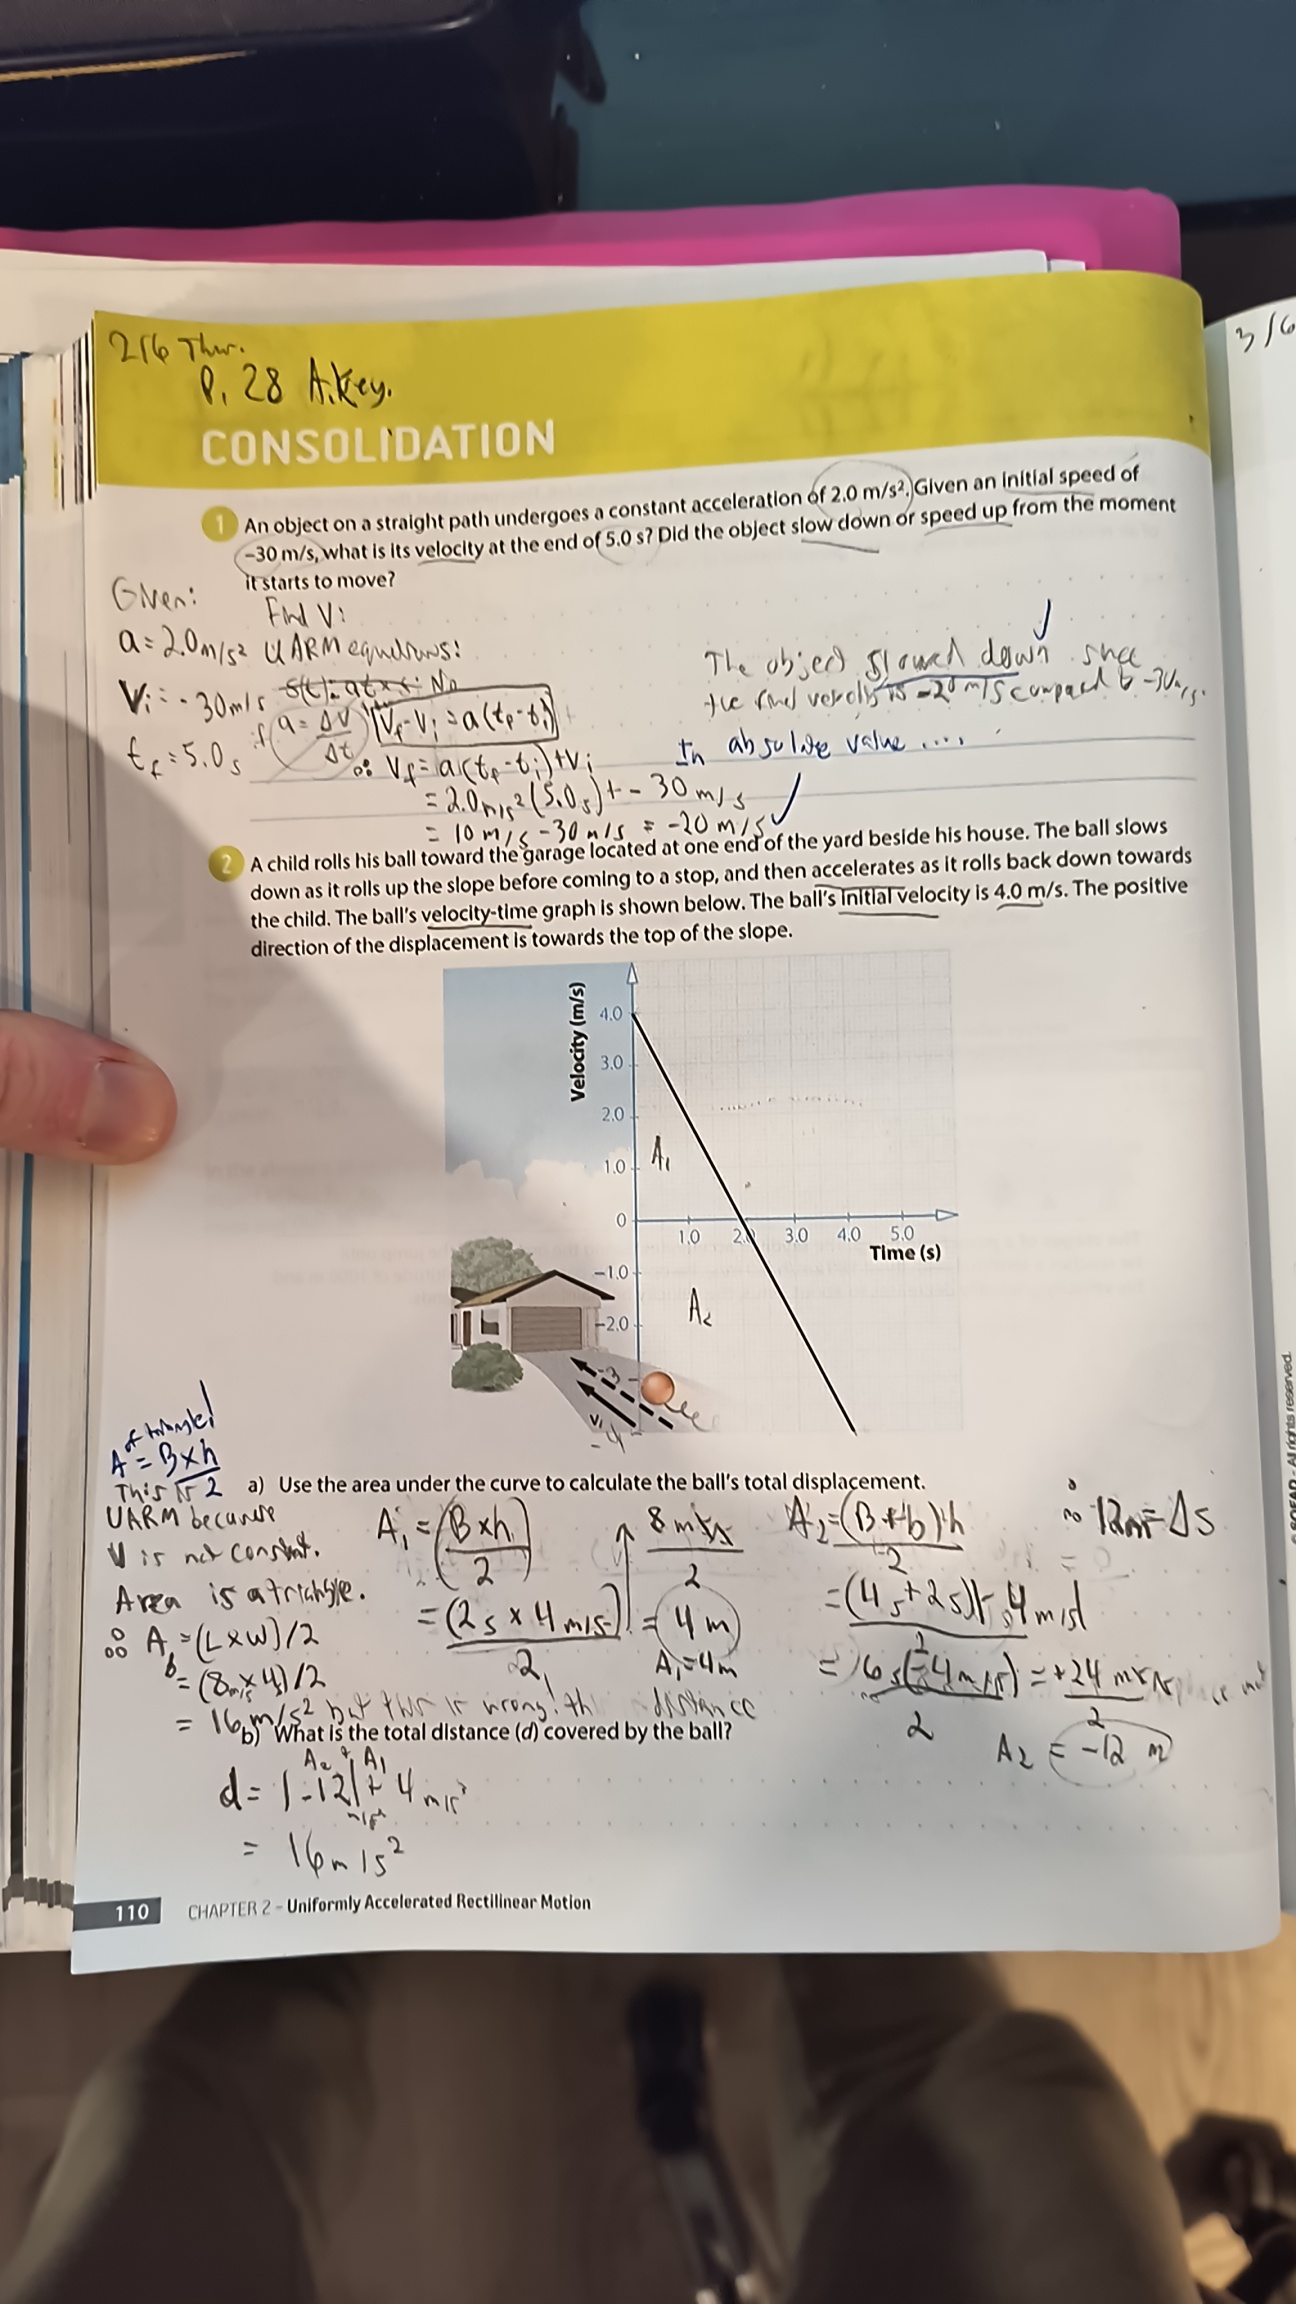 216 Thur.
P. 28 A.key.
3/6
CONSOLIDATION
1 An object on a straight path undergoes a constant acceleration of 2.0 m/s². Given an initial speed of
−30 m/s, what is its velocity at the end of 5.0 s? Did the object slow down or speed up from the moment
it starts to move?
Given:
Find V:
a = 2.0 m/s² UARM equations:
Vi = -30 m/s
tf = 5.0 s
a = ΔV/Δt Vf - Vi = a(tf - ti)
∴ Vf = a(tf - ti) + Vi
= 2.0 m/s² (5.0 s) + - 30 m/s
= 10 m/s - 30 m/s = -20 m/s
The object slowed down since
the final velocity is -20 m/s compared to -30 m/s.
In absolute value ....
2 A child rolls his ball toward the garage located at one end of the yard beside his house. The ball slows
down as it rolls up the slope before coming to a stop, and then accelerates as it rolls back down towards
the child. The ball's velocity-time graph is shown below. The ball's initial velocity is 4.0 m/s. The positive
direction of the displacement is towards the top of the slope.
Velocity (m/s)
4.0
3.0
2.0
1.0
0
−1.0
−2.0
-3
-4
1.0 2.0 3.0 4.0 5.0
Time (s)
A₁
A₂
Vi
a) Use the area under the curve to calculate the ball's total displacement.
of triangle!
A = B×h
2
This is
UARM because
V is not constant.
Area is a triangle.
∴ A = (L×W)/2
= (8 m/s × 4)/2
= 16 m/s² but this is wrong!
distance
A₁ = (B×h)
2
= (2s × 4 m/s)
2
8
2
= 4 m
A₁ = 4 m
A₂ = (B+b)h
2
= (4s + 2s) - 4 m/s
2
= 6s (-4 m/s) = +24
2 2
A₂ = -12 m
∴ 12m = Δs
b) What is the total distance (d) covered by the ball?
A₂ + A₁
d = |-12| + 4 m/s²
= 16 m/s²
110 CHAPTER 2 – Uniformly Accelerated Rectilinear Motion
© SOFAD - All rights reserved.